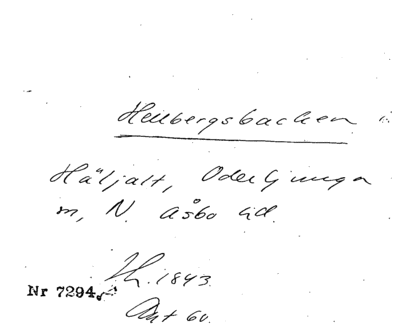 Hellbergsbacken i
Häljalt, Oderljunga
m, N. Åsbo hd.
Th. 1843.
Nr 7294
Ant 60.